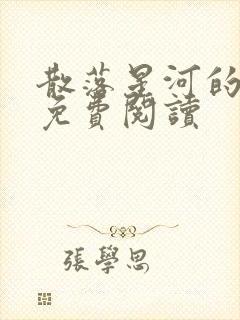 散落星河的
免費閱讀
張學思